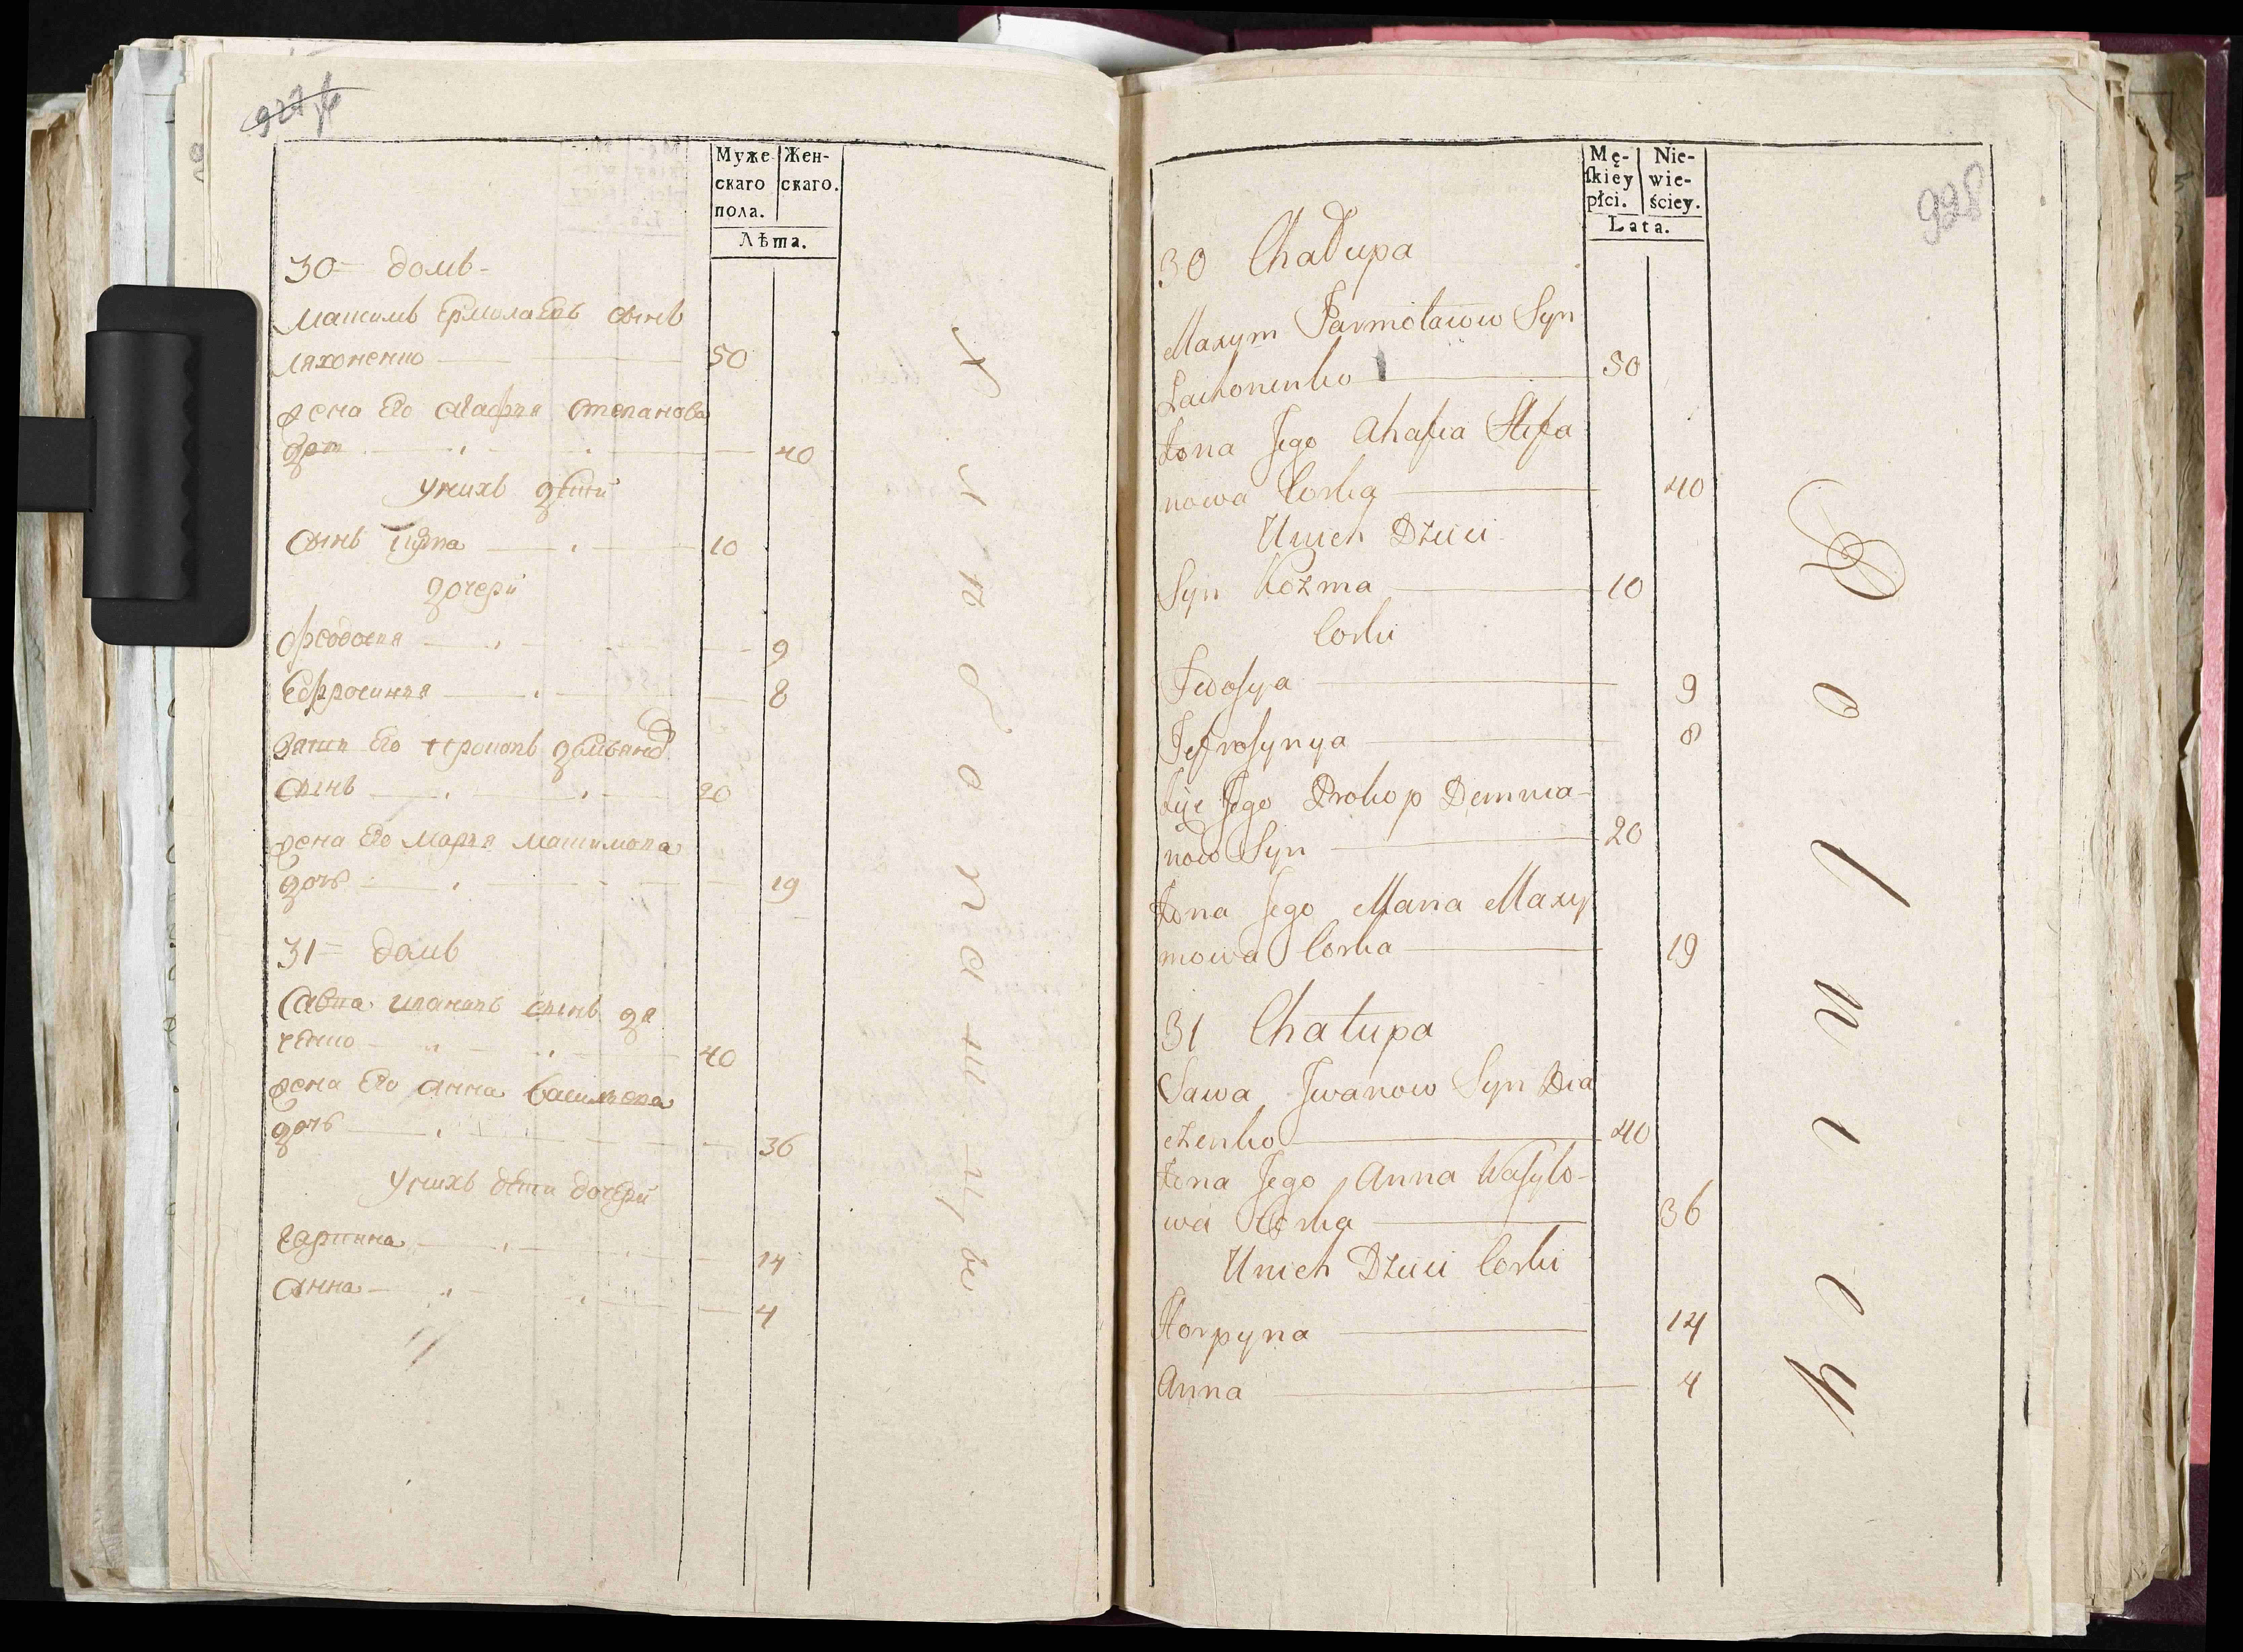 927
Муже
скаго
пола.
Жен-
скаго.
Лѣта.
30= домъ-
Максимъ Ермолаевъ сынъ
ляхоненко 50
жена Его Агафья степанова
дочь 40
унихъ дѣти
Сынъ Кузма 10
дочери
Феодосия 9
Ефросинья 8
зять Его прокопъ демьянов
сынъ 20
жена Его Марья максимова
дочь 19
31= домъ
Савва ивановъ сынъ дя
ченко 40
жена Его Анна васильева
дочь 36
унихъ дѣти дочери
Гарпина 14
Анна 4
998
Mę-
ſkiey
płci.
Nie-
wie-
ściey.
Lata.
30 Chałupa
Maxym Jarmołaiow Syn
Lachonenko 50
Żona Jego Ahafia Stefa
nowa Corka 40
Unich Dzieci
Syn Kozma 10
Corki
Fedoſya 9
Jefroſynya 8
Zięć Jego Prokop Demnia-
now Syn 20
Żona Jego Maria Maxy
mowa Corka 19
31 Chałupa
Sawa Jwanow Syn Dia
czenko 40
Żona Jego Anna Waſylo-
wa Corka 36
Unich Dzieci Corki
Horpyna 14
Anna 4